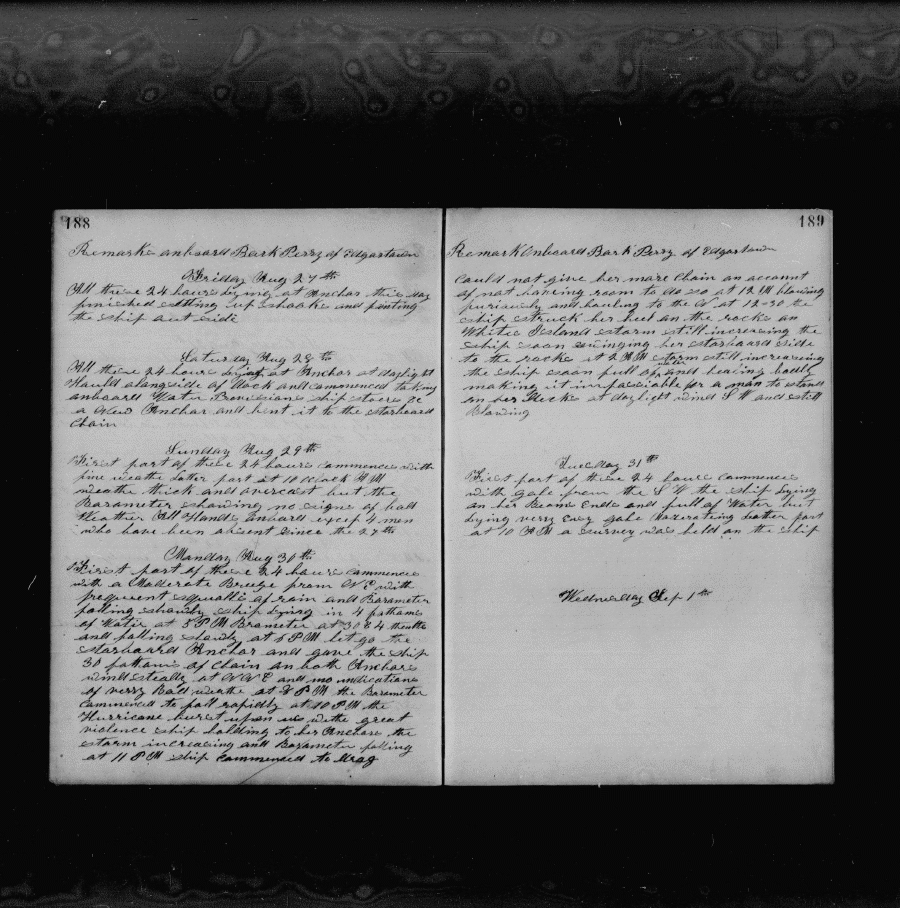 188
Remarks onboard Bark Perry of Edgartown
Friday Aug 27th
All these 24 hours lying at Anchor this day
finished setting up shooks and painting
the ship out side
Saturday Aug 28th
All these 24 hours lying at Anchor at daylight
Hauld alongside of Dock and commenced taking
onboard Water Provisions ship stores &c
a New Anchor and bent it to the starboard
Chain
Sunday Aug 29th
First part of these 24 hours commences with
fine weathe Latter part at 10 oclock AM
weathe thick and overcast but the
Barameter showing no signs of bad
Weather All Hands onboard excep 4 men
who have been absent since the 27th
Monday Aug 30th
First part of these 24 hours commences
with a Moderate Breeze from NE with
frequent squalls of rain and Barameter
falling slowly ship lying in 4 fathoms
of Water at 5 PM Brameter at 30 84
and falling slowly at 6 PM let go the
starboard Anchor and gave the ship
30 fathoms of Chain on both Anchors
wind steady at NNE and no indications
of verry Bad weathe at 8 PM the Barameter
commenced to fall rapidly at 10 PM the
Hurricane burst upon us withe great
violence ship holding to her Anchors the
storm increasing and Barameter falling
at 11 PM ship commenced to drag
189
Remark Onboard Bark Perry of Edgartown
Could not give her more Chain on account
of not having room to do so at 12 M blowing
furiously and hauling to the N at 12-30 the
ship struck her heel on the rocks on
White Island storm still increasing the
ship soon swinging her starboard side
to the rocks at 2 AM storm still increasing
the ship soon full of water and heaving badly
making it impassiable for a man to stand
on her Decks at daylight wind S W and still
Blowing
Tuesday 31th
First part of these 24 hours commences
with gale from the S W the ship lying
on her Beams Ends and full of Water but
lying verry easy gale Moderating Latter part
at 10 AM a survey was held on the ship
Wednesday Sep 1th